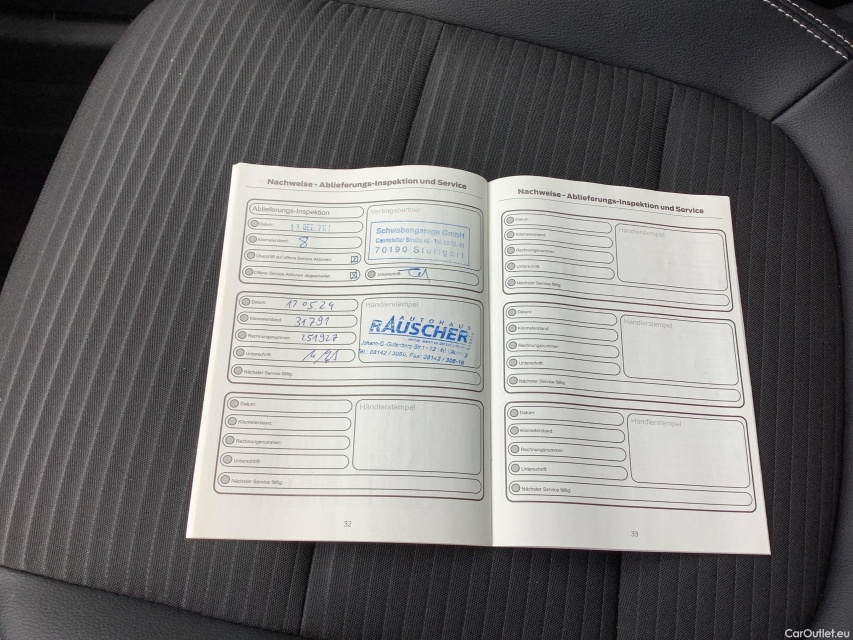 Nachweise - Ablieferungs-Inspektion und Service
Ablieferungs-Inspektion
Datum: 13. DEZ.
Kilometerstand: 8
Überprüft auf offene Service Aktionen: ☒
Offene Service Aktionen abgearbeitet: ☒
Vertragspartner
Schwabengarage GmbH
70190 Stuttgart
Unterschrift:
Datum: 17 05.24
Kilometerstand: 31791
Rechnungsnummer: 251927
Unterschrift:
Nächster Service fällig:
Händlerstempel
AUTOHAUS
RÄUSCHER
Johann-G.-Gutenberg-Str.
Tel.: 08142 / 3050, Fax: 08142 /
Datum:
Kilometerstand:
Rechnungsnummer:
Unterschrift:
Nächster Service fällig:
Händlerstempel
32
Nachweise - Ablieferungs-Inspektion und Service
Datum:
Kilometerstand:
Rechnungsnummer:
Unterschrift:
Nächster Service fällig:
Händlerstempel
Datum:
Kilometerstand:
Rechnungsnummer:
Unterschrift:
Nächster Service fällig:
Händlerstempel
Datum:
Kilometerstand:
Rechnungsnummer:
Unterschrift:
Nächster Service fällig:
Händlerstempel
33
CarOutlet.eu